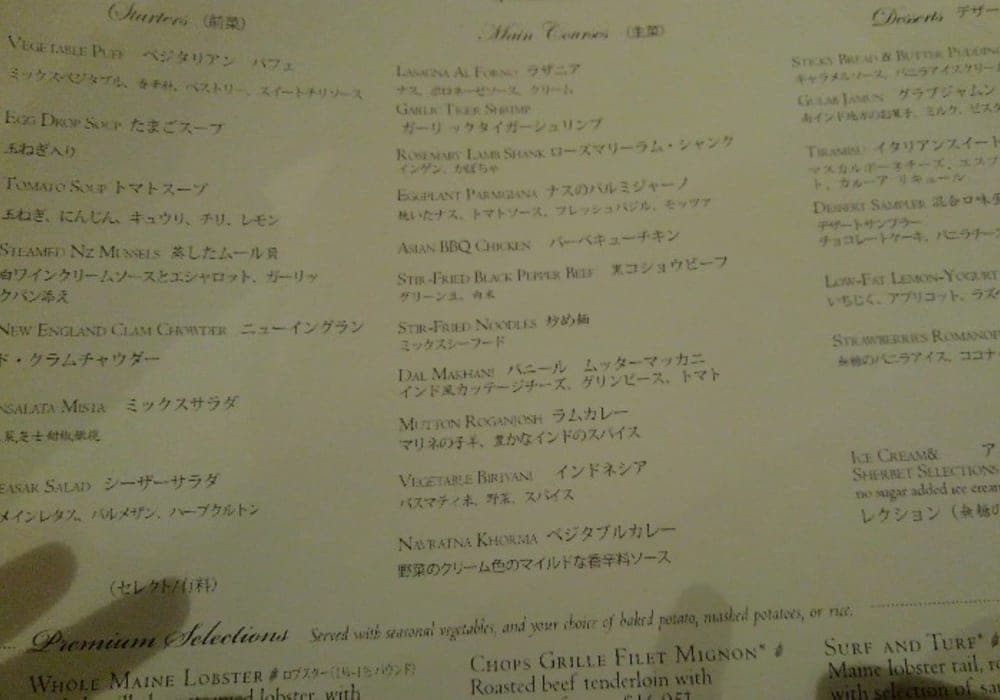 Starters (前菜)
VEGETABLE PUFF ベジタリアン パフェ
ミックスベジタブル、香辛料、ペストリー、スイートチリソース
EGG DROP SOUP たまごスープ
玉ねぎ入り
TOMATO SOUP トマトスープ
玉ねぎ、にんじん、キュウリ、チリ、レモン
STEAMED NZ MUSSELS 蒸したムール貝
白ワインクリームソースとエシャロット、ガーリッ
クパン添え
NEW ENGLAND CLAM CHOWDER ニューイングラン
ド・クラムチャウダー
NSALATA MISTA ミックスサラダ
EASAR SALAD シーザーサラダ
メインレタス、パルメザン、ハーブクルトン
(セレクト/有料)
Main Courses (主菜)
LASAGNA AL FORNO ラザニア
ナス、ボロネーゼソース、クリーム
GARLIC TIGER SHRIMP
ガーリックタイガーシュリンプ
ROSEMARY LAMB SHANK ローズマリーラム・シャンク
インゲン、かぼちゃ
EGGPLANT PARMGIANA ナスのパルミジャーノ
焼いたナス、トマトソース、フレッシュバジル、モッツア
ASIAN BBQ CHICKEN バーベキューチキン
STIR-FRIED BLACK PEPPER BEEF 黒コショウビーフ
グリーン豆、白米
STIR-FRIED NOODLES 炒め麺
ミックスシーフード
DAL MAKHANI パニール ムッターマッカニ
インド風カッテージチーズ、グリンピース、トマト
MUTTON ROGANJOSH ラムカレー
マリネの子羊、豊かなインドのスパイス
VEGETABLE BIRIYANI インドネシア
バスマティ米、野菜、スパイス
NAVRATNA KHORMA ベジタブルカレー
野菜のクリーム色のマイルドな香辛料ソース
Desserts デザー
STICKY BREAD & BUTTER PUDDIN
キャラメルソース、バニラアイスクリーム
GULAB JAMUN グラブジャムン
南インド地方のお菓子、ミルク、ピスタ
TIRAMISU イタリアンスイート
マスカルポーネチーズ、エスプ
ト、カルーア リキュール
DESSERT SAMPLER 混合口味
デザートサンプラー
チョコレートケーキ、バニラチーズ
LOW-FAT LEMON-YOGURT
いちじく、アプリコット、ラズ
STRAWBERRIES ROMANOF
無糖のバニラアイス、ココナ
ICE CREAM& ア
SHERBET SELECTIONS
no sugar added ice cream
レクション (無糖の
Premium Selections Served with seasonal vegetables, and your choice of baked potato, mashed potatoes, or rice.
WHOLE MAINE LOBSTER # ロブスター(1¼-1½パウンド)
lobster, with
CHOPS GRILLE FILET MIGNON* #
Roasted beef tenderloin with
SURF AND TURF* #
Maine lobster tail,
with selection of